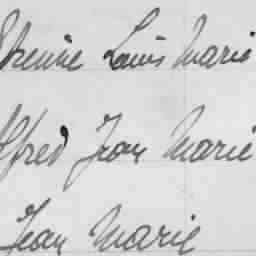 Etienne Louis Marie
Alfred Jean Marie
Jean Marie